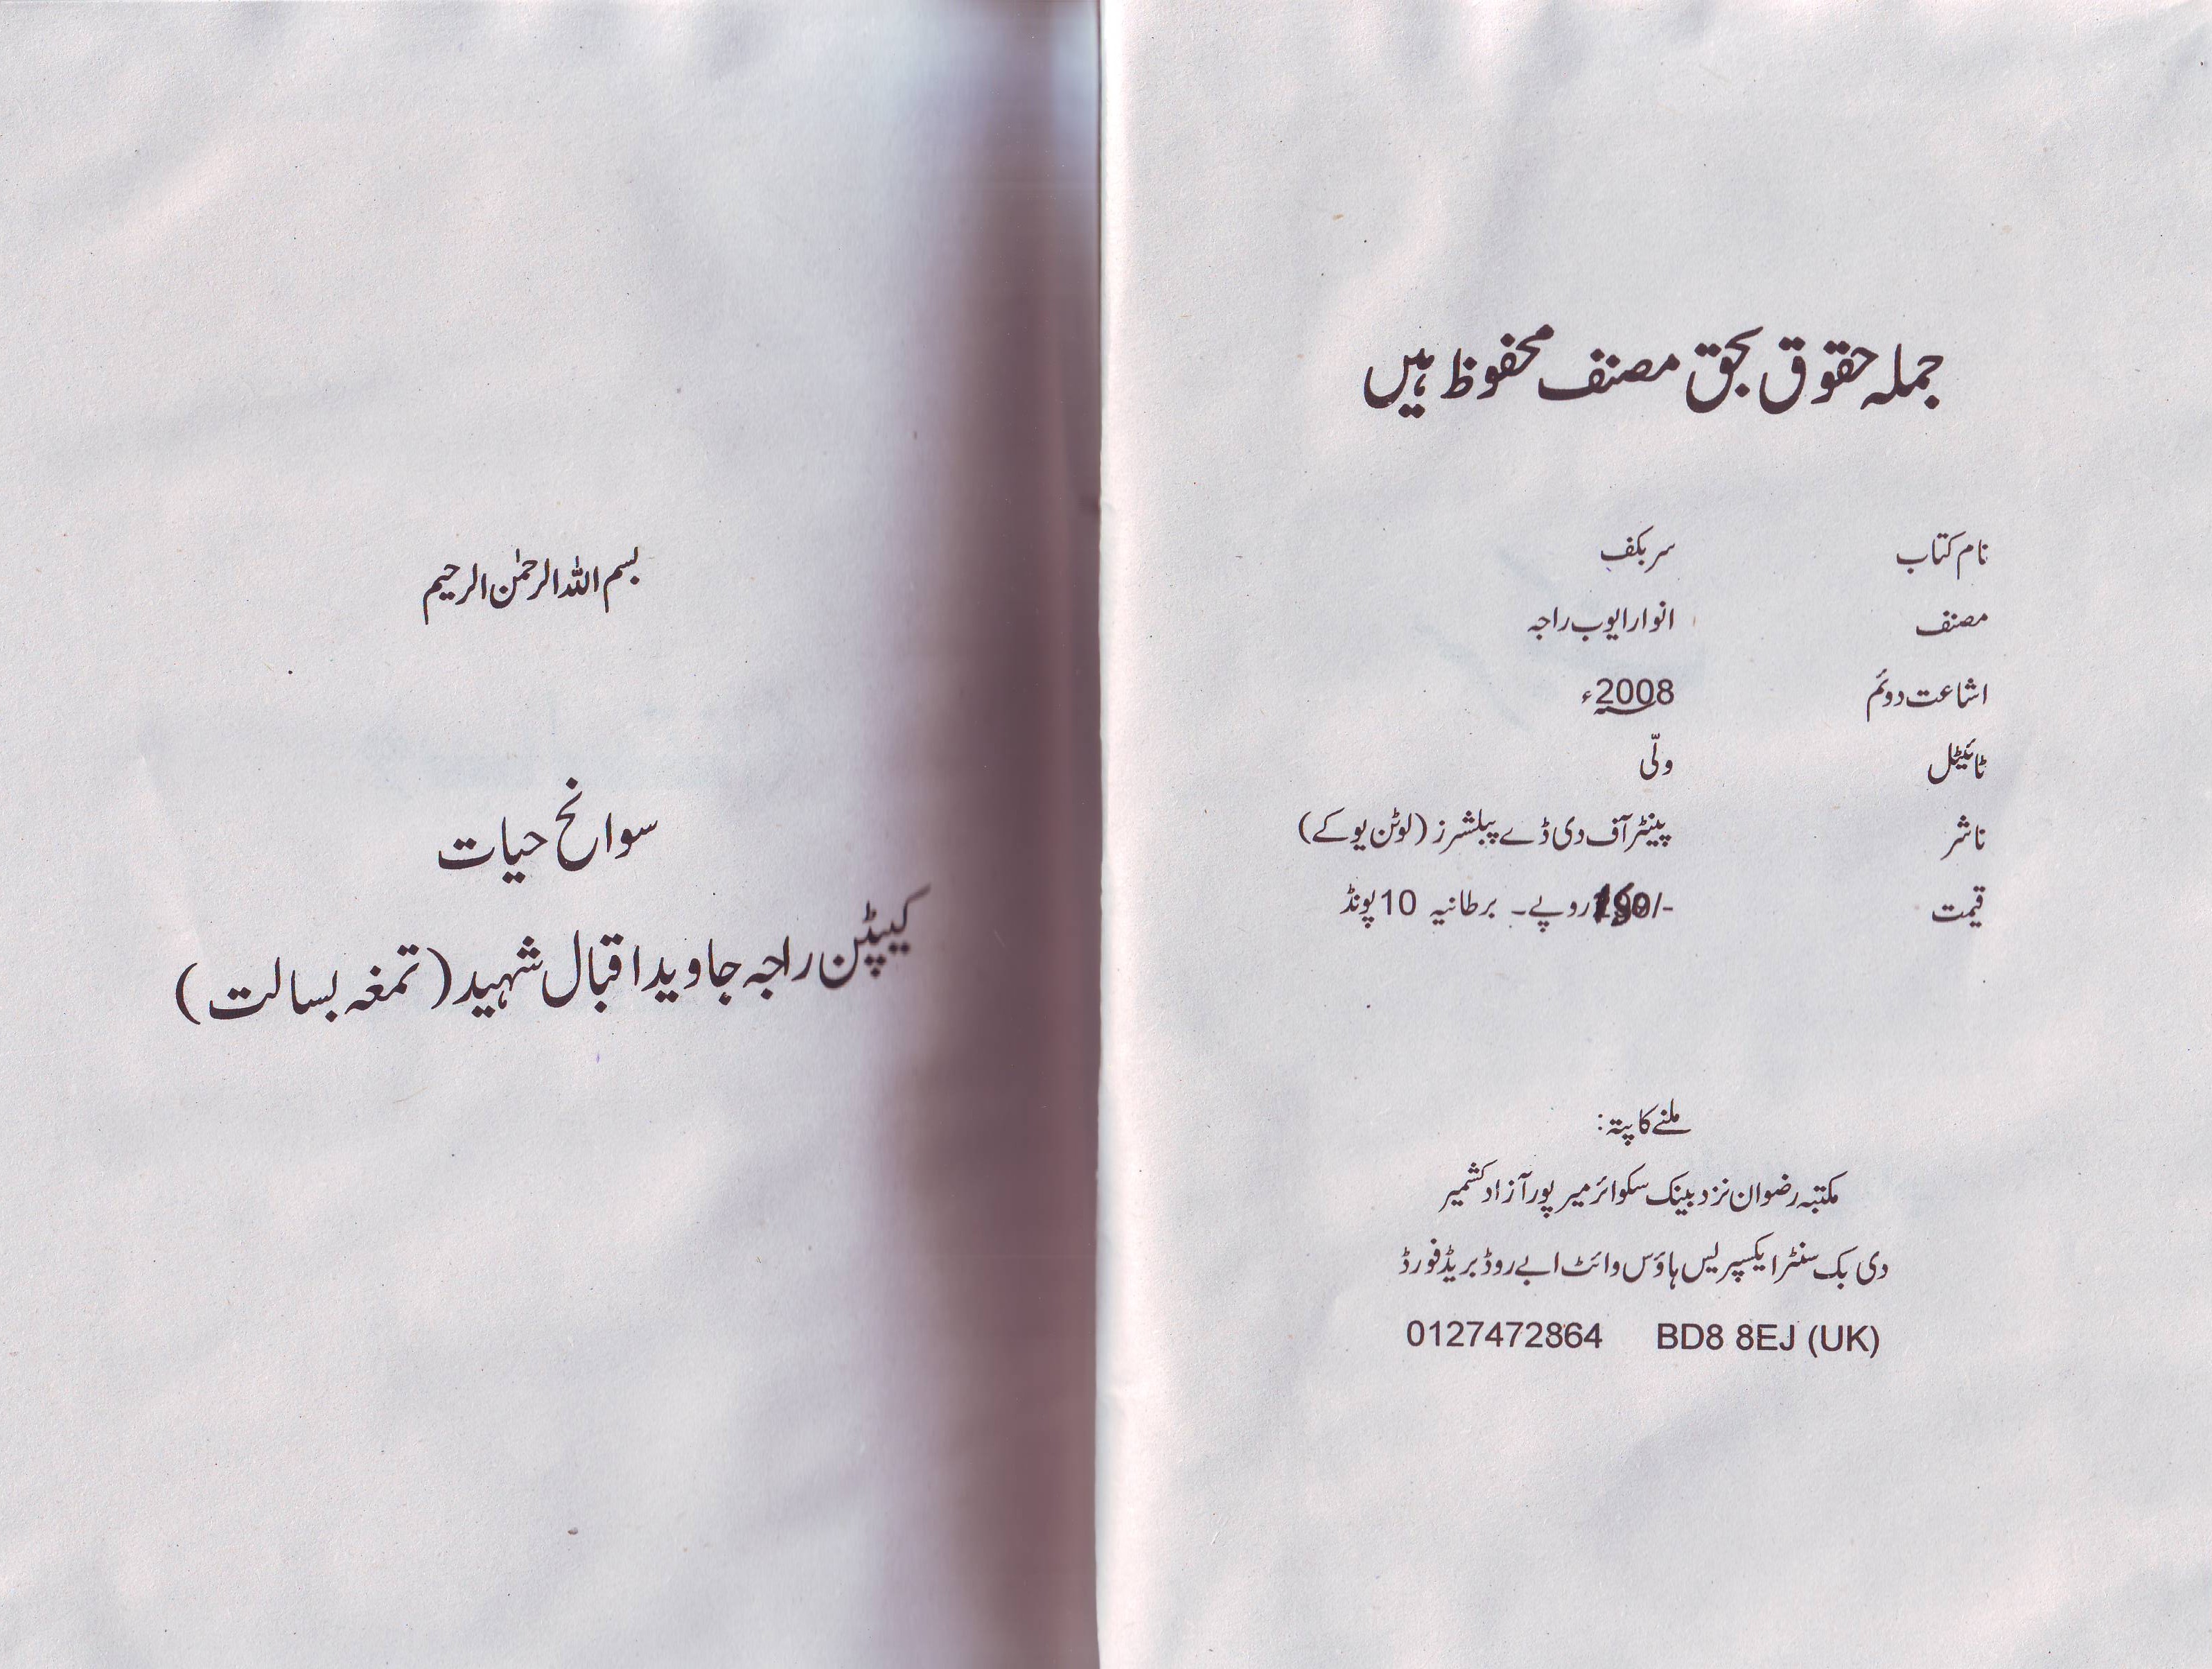 جملہ حقوق بحق مصنف محفوظ ہیں
نام کتاب سربکف
مصنف انوار ایوب راجہ
اشاعت دوئم 2008ء
ٹائیٹل ولّی
ناشر پینٹر آف دی ڈے پبلشرز (لوٹن یو کے)
قیمت /- روپے۔ برطانیہ 10 پونڈ
ملنے کا پتہ:
مکتبہ رضوان نزد بینک سکوائر میر پور آزاد کشمیر
دی بک سنٹر ایکسپریس ہاؤس وائٹ ابے روڈ بریڈفورڈ
0127472864 BD8 8EJ (UK)
بسم اللہ الرحمٰن الرحیم
سوانح حیات
کیپٹن راجہ جاوید اقبال شہید (تمغہ بسالت)